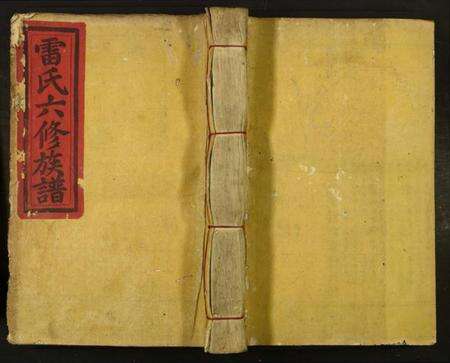 雷氏六修族譜